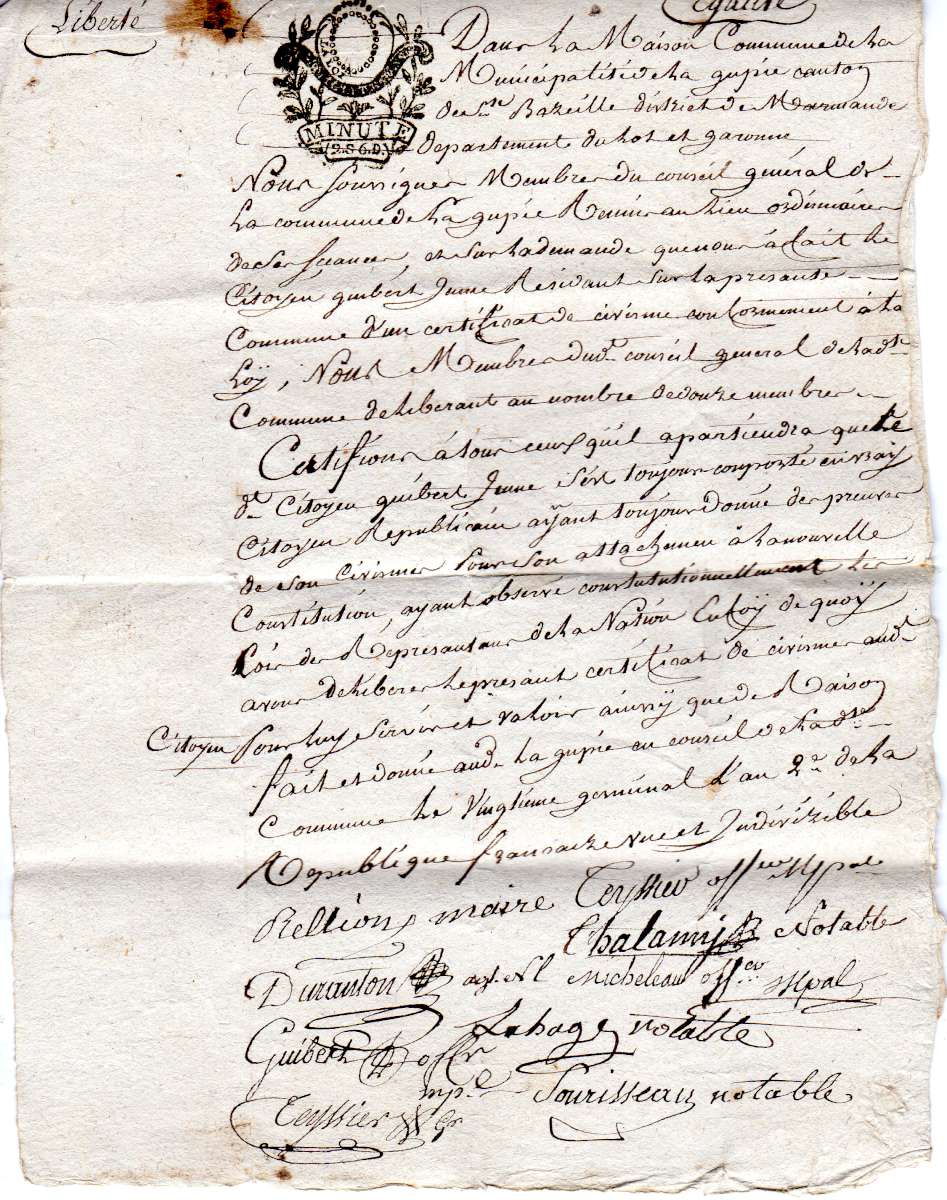 Liberté
Egalité
MINUTE
12.S 6.D.
Dans La Maison Commune de La
Municipalité de La gupie canton
de Ste Bazeille district de Marmande
departement du lot et garonne
Nous soussignés Membres du conseil général de
La commune de La gupie Réunis au Lieu ordinaire
de ses séances, et sur La demande que nous à fait Le
Citoyen guibert Jeune Résidant sur La presante
Commune d'un certificat de civisme conformement à La
Loÿ, Nous Membres dudt conseil general de Ladte
Commune deliberant au nombre de douze membres
Certifions à tous ceux qu'il apartiendra que Le
dt Citoyen guibert Jeune s'est toujour comporté en vray
Citoyen Republicain aÿant toujour donné des preuves
de son civisme pour son attachemen à La nouvelle
Constitution, ayant observé constitutionnellement Les
Lois des Représantans de La Nation En foÿ de quoÿ
avons deliberer Le presant certificat de civisme audt
Citoyen pour Luy servir et valoir ainsy que de Raison
fait et donné aud. La gupie au conseil de Ladte
Commune Le vingtieme germinal L'an 2e de La
Republique francaize une et Indivizible
Rellion maire Teyssier offier Mpal
Chalamy Notable
Duranton agt nl Micheleau offier Mpal
Lahage notable
Guibert offr
mpl Sourisseau notable
Teyssier Gr